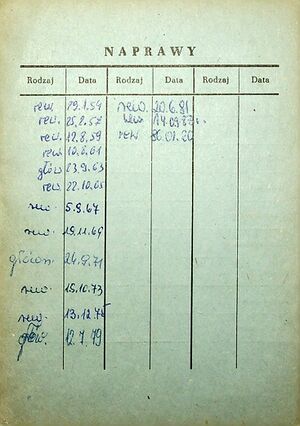 NAPRAWY
Rodzaj Data Rodzaj Data Rodzaj Data
rew. 29.1.54 rew. 20.6.81
rew. 25.8.57 rew
rew. 12.8.59 rew
rew. 10.8.61
głów 23.9.63
rew. 22.10.65
rew. 5.9.67
rew. 19.11.69
główn. 24.9.71
rew. 15.10.73
rew. 13.12.75
głów. 12.7.79